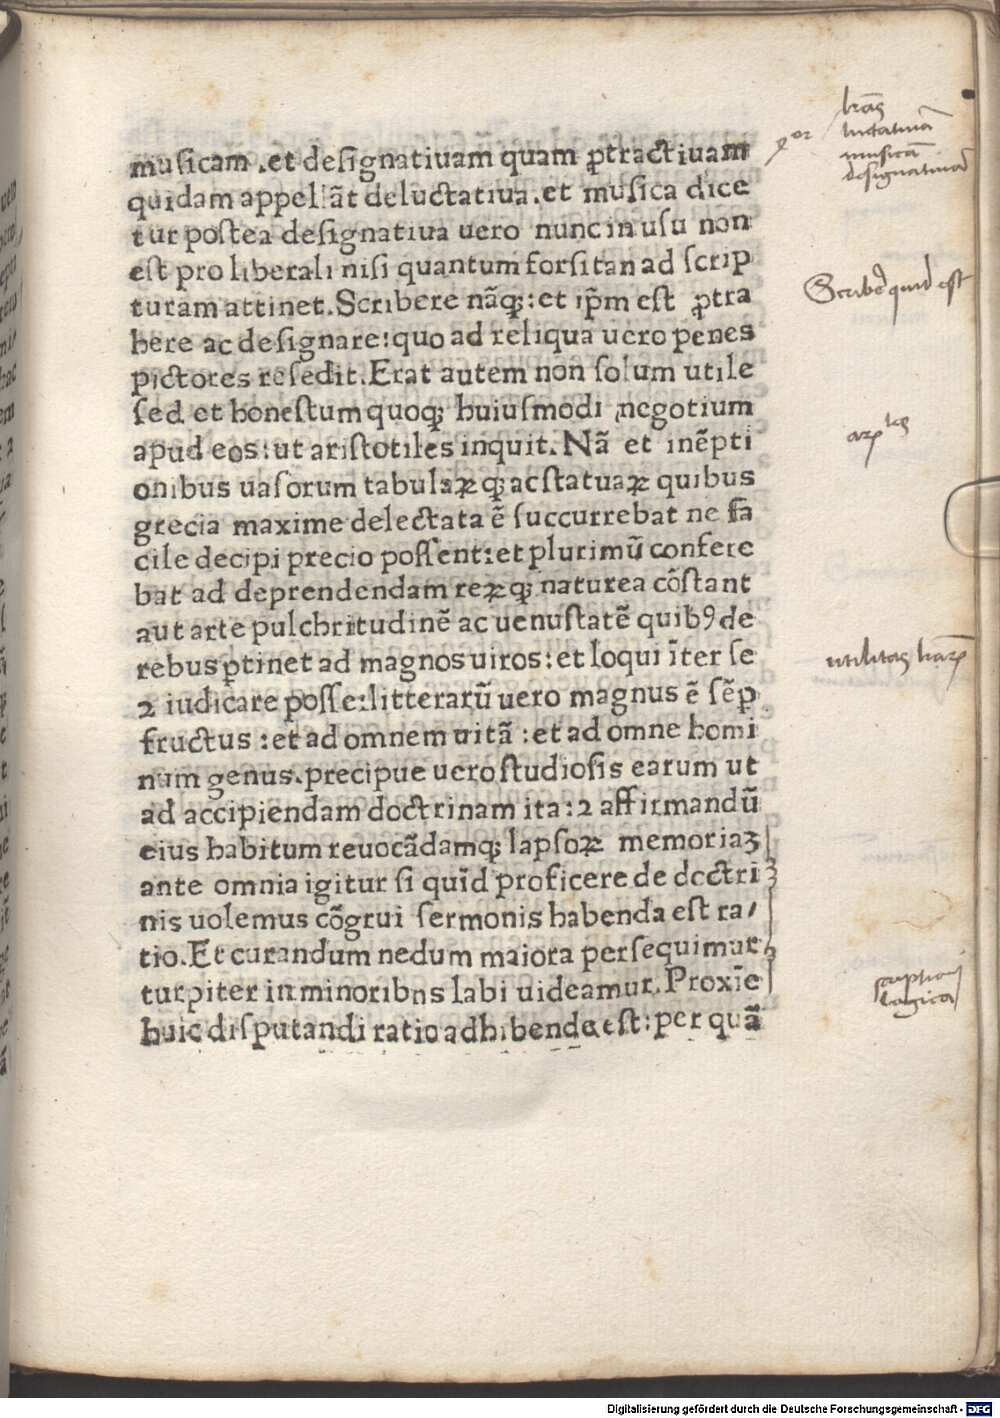 musicam .et designatiuam quam ꝓtractiuam
quidam appellãt deluctatiua.et musica dice
tur postea designatiua uero nunc in usu non
est pro liberali nisi quantum forsitan ad scrip
turam attinet.Scribere nãqꝫ:et ip̃m est ꝓtra
here ac designare:quo ad reliqua uero penes
pictores resedit.Erat autem non solum utile
sed et honestum quoqꝫ huiusmodi negotium
apud eos:ut aristotiles inquit.Nã et inẽpti
onibus uasorum tabulaꝝqꝫ ac statuaꝝ quibus
grecia maxime delectata ẽ succurrebat ne fa
cile decipi precio possent:et plurimũ confere
bat ad deprendendam reꝝqꝫ naturea cõstant
aut arte pulchritudinẽ ac uenustatẽ quibꝰ de
rebus ꝑtinet ad magnos uiros:et loqui ĩter se
2 iudicare posse:litterarũ uero magnus ẽ sẽꝑ
fructus :et ad omnem uitã :et ad omne homi
num genus.precipue uero studiosis earum ut
ad accipiendam doctrinam ita:2 affirmandũ
eius habitum reuocãdamqꝫ lapsoꝝ memoriaꝫ
ante omnia igitur si quid proficere de doctri
nis uolemus cõgrui sermonis habenda est ra/
tio.Et curandum nedum maiora persequimur
turpiter in minoribns labi uideamur.Proxĩe
huic disputandi ratio adhibenda est:per quã
luctatiuã
musicã
designatiuã
Scribe᷑ quid est
utilitas lr̃aꝝ
logica
Digitalisierung gefördert durch die Deutsche Forschungsgemeinschaft - DFG